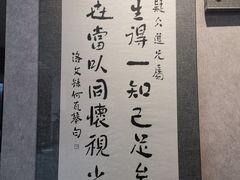 疑仌道兄屬
生得一知己足矣
世當以同懷視之
洛文錄何瓦琴句